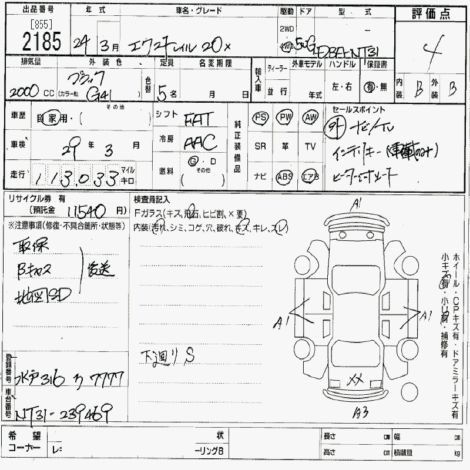 出品番号 [855] 2185
年式 24年3月
車名・グレード エクストレイル 20X
駆動 2WD
ドア 5
型式 DBA-NT31
評価点 4
排気量 2000 CC
外装色 ブラック (カラーNo. G41)
色替
定員 5名
名変期限 月 日
輸入車 ディーラー 並行
外車モデル 年
ハンドル 左・右
保証書 有・無
内装 B
外装 B
車歴 自家用・(その他)
シフト FAT
車検 29年3月
冷房 AAC
走行 113,033 マイル キロ
燃料 G・D (その他)
純正装備品 PS PW AW
SR 革 TV
ナビ ABS エアB
セールスポイント
外 ナビ/TV
インテリキー
ヒーターシート
リサイクル券 有 (預託金 11540 円)
※注意事項(修復・不具合箇所・状態等)
取保
Bキャス
地図SD
後送
検査員記入
Fガラス(キズ,飛石,ヒビ割,×要)
内装(汚れ,シミ,コゲ,穴,破れ,キズ,キレ,スレ)
下廻り S
A1
A1
A1
XX
A3
ホイール・CPキズ有・ドアミラーキズ有
小キズ有・小凹有・補修有
登録番号 水戸 316 ろ 7777
車台番号 NT31-239469
希望コーナー
レー
状
ーリングB
長さ cm
幅 cm
高さ cm
積載量